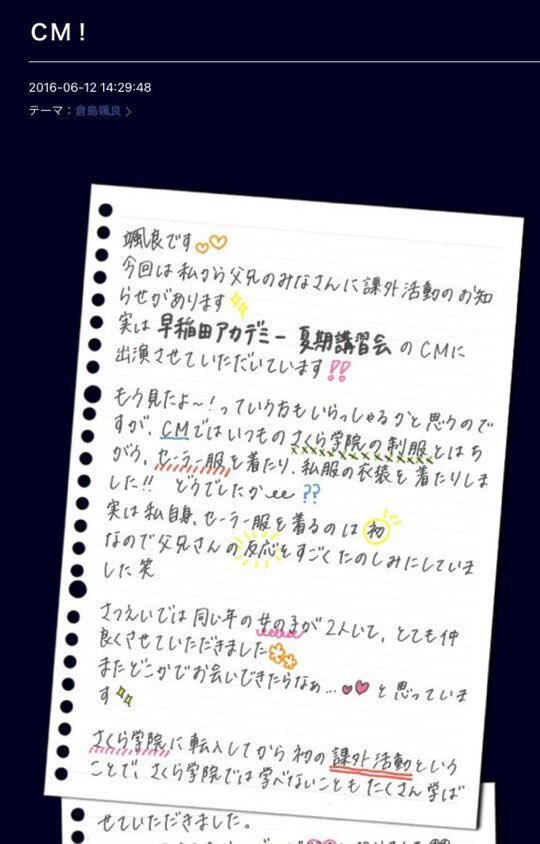 CM！
2016-06-12 14:29:48
テーマ：倉島颯良 >
颯良です♡♡
今回は私から父兄のみなさんに課外活動のお知
らせがあります✨
実は 早稲田アカデミー 夏期講習会 のCMに
出演させていただいています!!
もう見たよ〜！っていう方もいらっしゃるかと思うので
すが、CMではいつものさくら学院の制服とはち
がう、セーラー服を着たり、私服の衣装を着たりしま
した!! どうでしたかee??
実は私自身、セーラー服を着るのは初
なので父兄さんの反応をすごくたのしみにしていま
した笑
さつえいでは同い年の女の子が2人いて、とても仲
良くさせていただきました
またどこかでお会いできたらなぁ...♥♥と思っていま
す✨
さくら学院に転入してから初の課外活動という
ことで、さくら学院では学べないこともたくさん学ば
せていただきました。